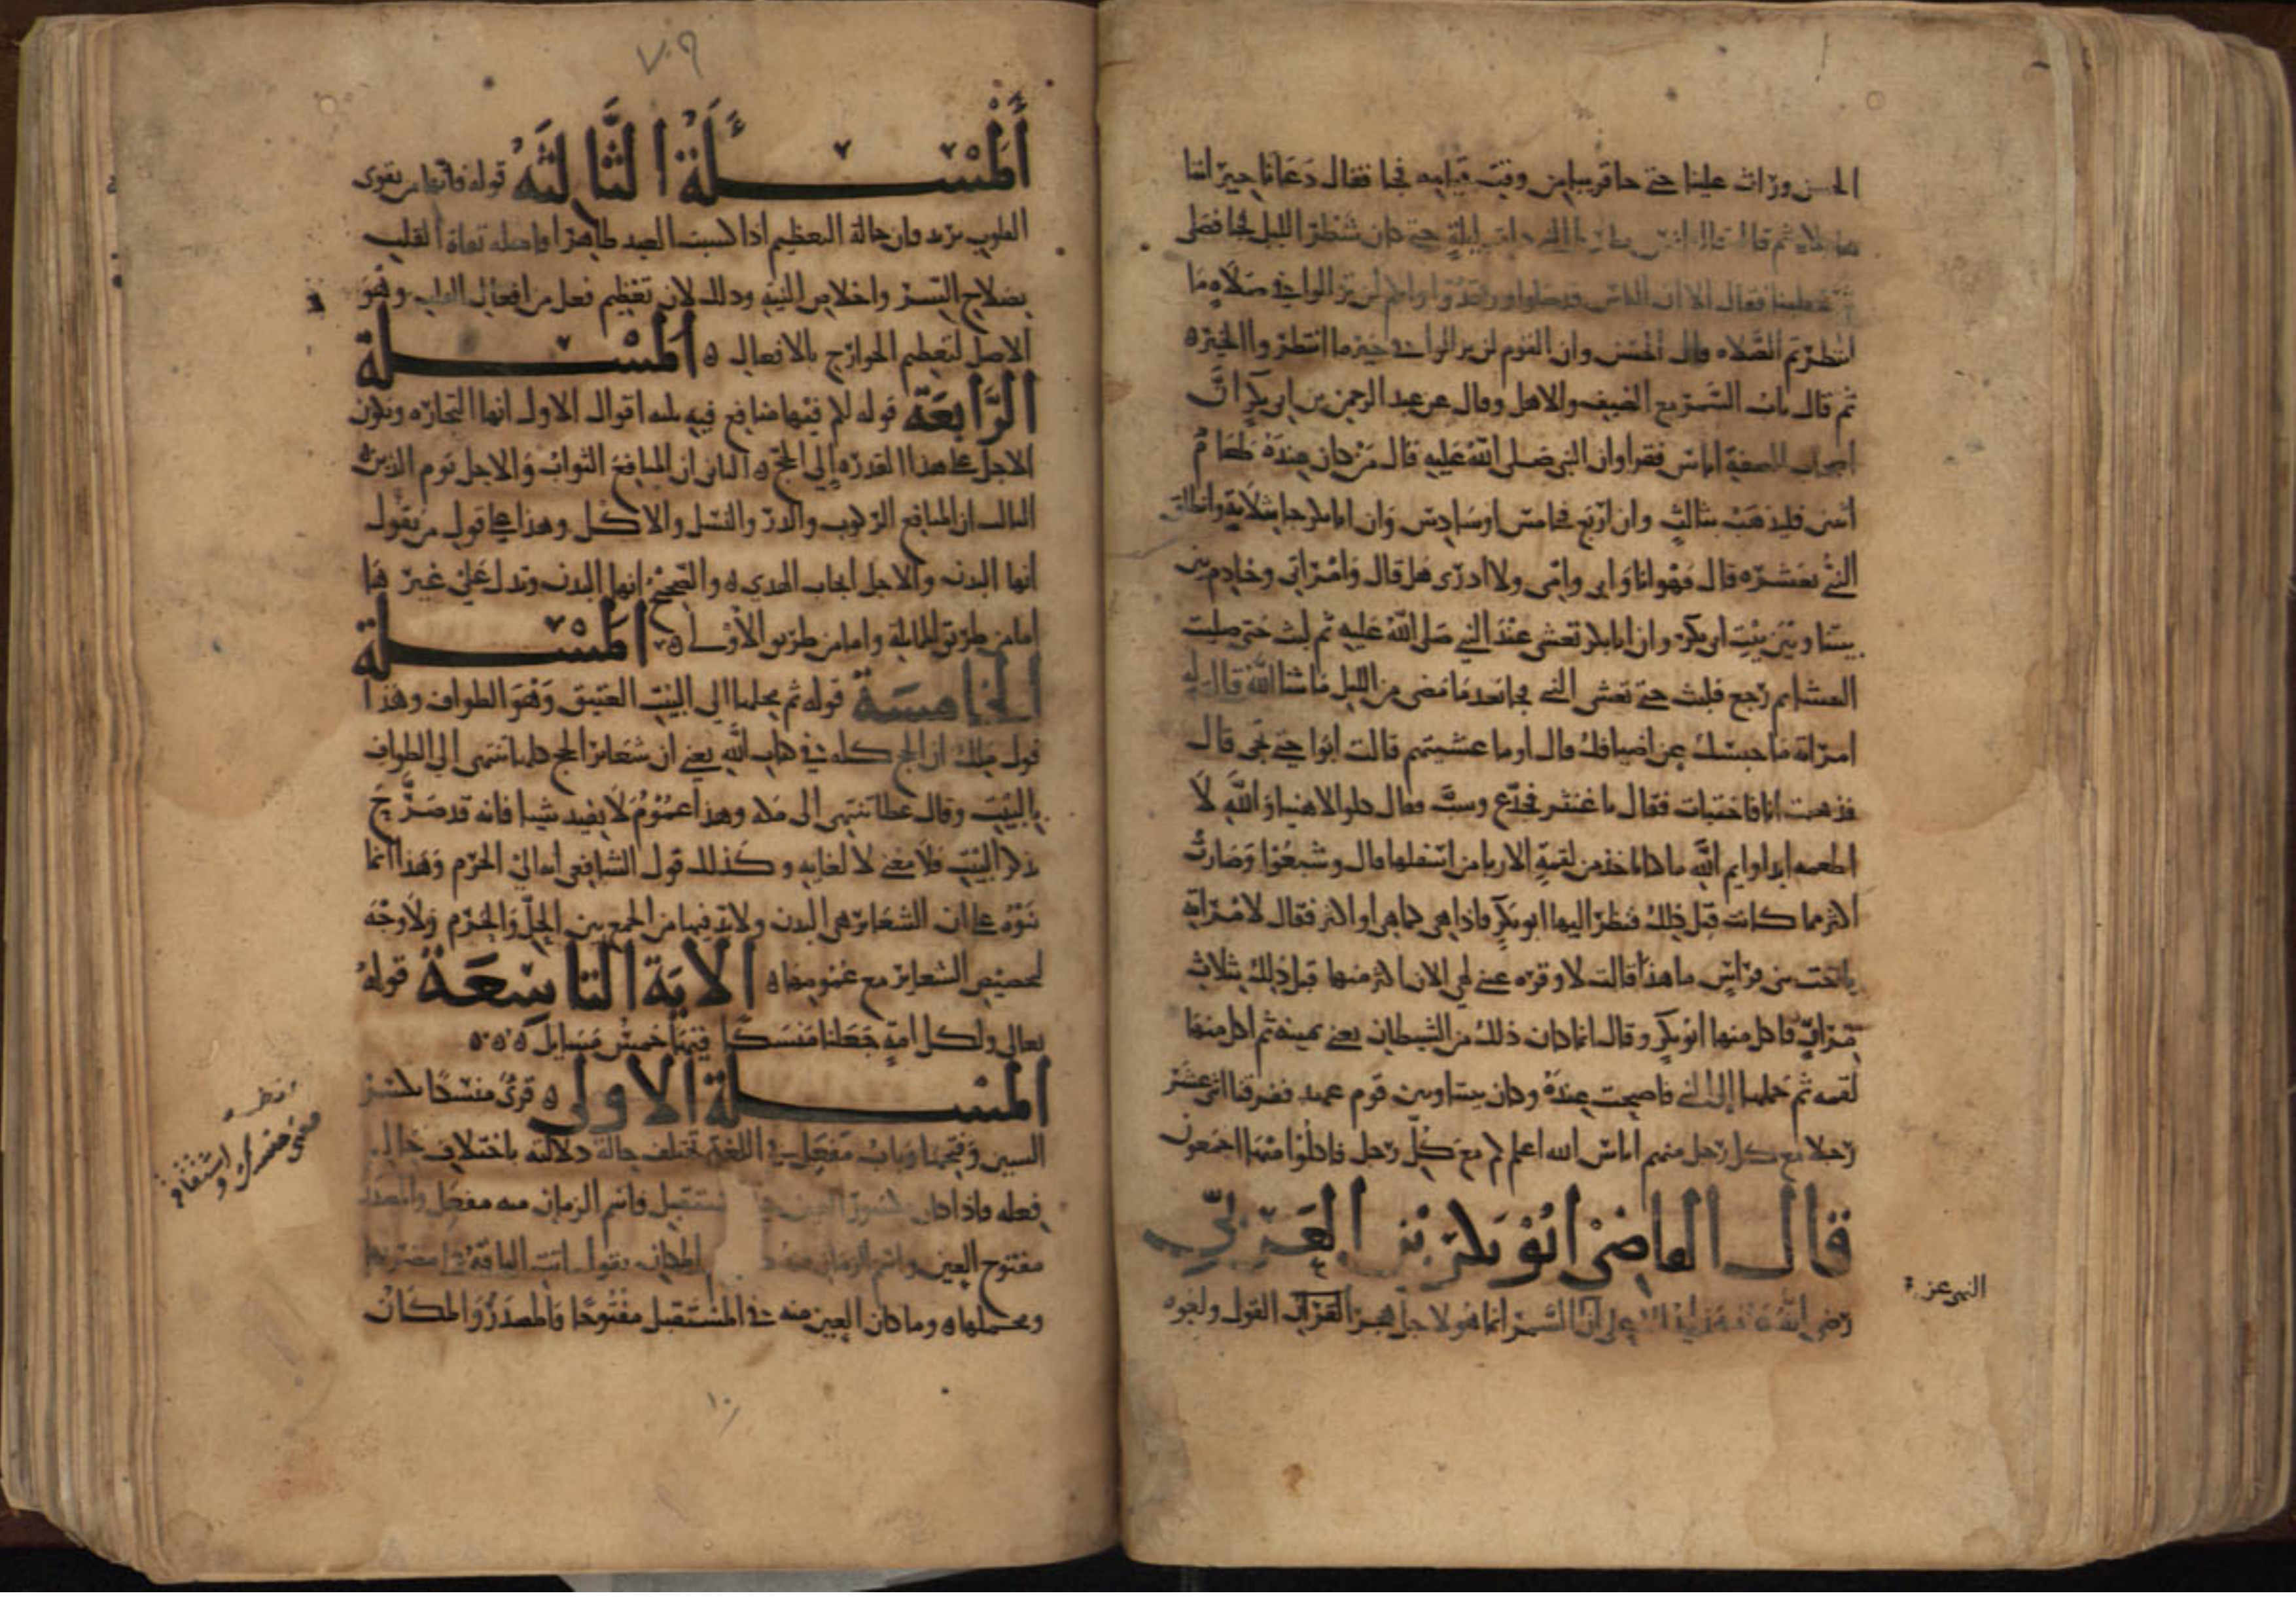 الحسن وراث علينا حتى جا قريبا من وقت قيامه فجا فقال دعانا جيراننا
هولاء ثم قال قال انس نظرنا النبي ذات ليلة حتى كان شطر الليل فجا فصلى
ثم خطبنا فقال الا ان الناس قد صلوا ورقدوا وانكم لن تزالوا في صلاه ما
انتظرتم الصلاه قال الحسن وان القوم لن يزالوا في خير ما انتظروا الخيره
ثم قال باب السمر مع الضيف والاهل وقال عن عبد الرحمن بن ابي بكر ان
اصحاب الصفة اناس فقرا وان النبي صلى الله عليه قال من كان عنده طعام
اثنين فليذهب بثالث وان اربع فخامس او سادس وان ابا بكر جا بثلاثة وانطلق
النبي بعشره قال فهو انا وابي وامي ولا ادري هل قال وامراتي وخادم بين
بيتنا وبين بيت ابي بكر وان ابا بكر تعشى عند النبي صلى الله عليه ثم لبث حتى صليت
العشا ثم رجع فلبث حتى تعشى النبي فجا بعد ما مضى من الليل ما شا الله قالت له
امراته ما حبسك عن اضيافك قال اوما عشيتهم قالت ابوا حتى تجي قال
فذهبت انا فاختبات فقال يا غنثر فجدع وسب وقال كلوا لا هنيا والله لا
اطعمه ابدا وايم الله ما كنا ناخذ من لقمة الا ربا من اسفلها قال وشبعوا وصارت
اكثر مما كانت قبل ذلك فنظر اليها ابو بكر فاذا هي كما هي او اكثر فقال لامراته
يا اخت بني فراس ما هذا قالت لا وقره عيني لهي الان اكثر منها قبل ذلك بثلاث
مرات فاكل منها ابو بكر وقال انما كان ذلك من الشيطان يعني يمينه ثم اكل منها
لقمه ثم حملها الى النبي فاصبحت عنده وكان بيننا وبين قوم عهد ففرقنا اثني عشر
رجلا مع كل رجل منهم اناس الله اعلم كم مع كل رجل فاكلوا منها اجمعون
قال القاضي ابو بكر بن العربي
رضي الله عنه هذا يدل على ان السمر انما هو لاجل هجر القران القول ولغوه
النهي عن
٧٠٩
المسئلة الثالثه قوله فانها من تقوى
القلوب يريد فان حالة التعظيم اذا كسبت العبد ظاهرا فاصله تقاة القلب
بصلاح السر واخلاص النية وذلك لان تعظيم فعل من افعال القلب وهو
الاصل لتعظيم الجوارح بالافعال ه المسئلة
الرابعة قوله لكم فيها منافع فيه ثلثه اقوال الاول انها التجاره ويكون
الاجل على هذا القدره الى الحج ه الثاني ان المنافع الثواب والاجل يوم الدين ه
الثالث ان المنافع الركوب والدر والنسل والاكل وهذا على قول من يقول
انها البدن والاجل ايجاب الهدي ه والصحيح انها البدن وتدل على غيرها
اما من طريق المماثلة واما من طريق الاولى ه المسئلة
الخامسة قوله ثم محلها الى البيت العتيق وهو الطواف وهذا
قول مالك ان الحج كله في كتاب الله يعني ان شعائر الحج كلها تنتهي الى الطواف
بالبيت وقال عطا تنتهي الى مكه وهذا عموم لا يفيد شيا فانه قد صرح
بذكر البيت فلا معنى لالغايه وكذلك قول الشافعي انه الى الحرم وهذا انما
بنوه على ان الشعائر هي البدن ولا بد فيها من الجمع بين الحل والحرم ولا وجه
لتخصيص الشعاير مع عمومها ه الاية التاسعة قوله
تعالى ولكل امة جعلنا منسكا فيها خمس مسايل ه ه ه
المسئلة الاولى ه قرئ منسكا بكسر
السين وفتحها وباب مفعل في اللغة تختلف حالة دلالته باختلاف حال
فعله فاذا كان مكسور العين في المستقبل فاسم الزمان منه مفعل والمصدر
مفتوح العين واسم الزمان منه المكان يقول اتت الناقة على مضربها
ومحملها ه وما كان العين منه في المستقبل مفتوحا فالمصدر والمكان
١٠